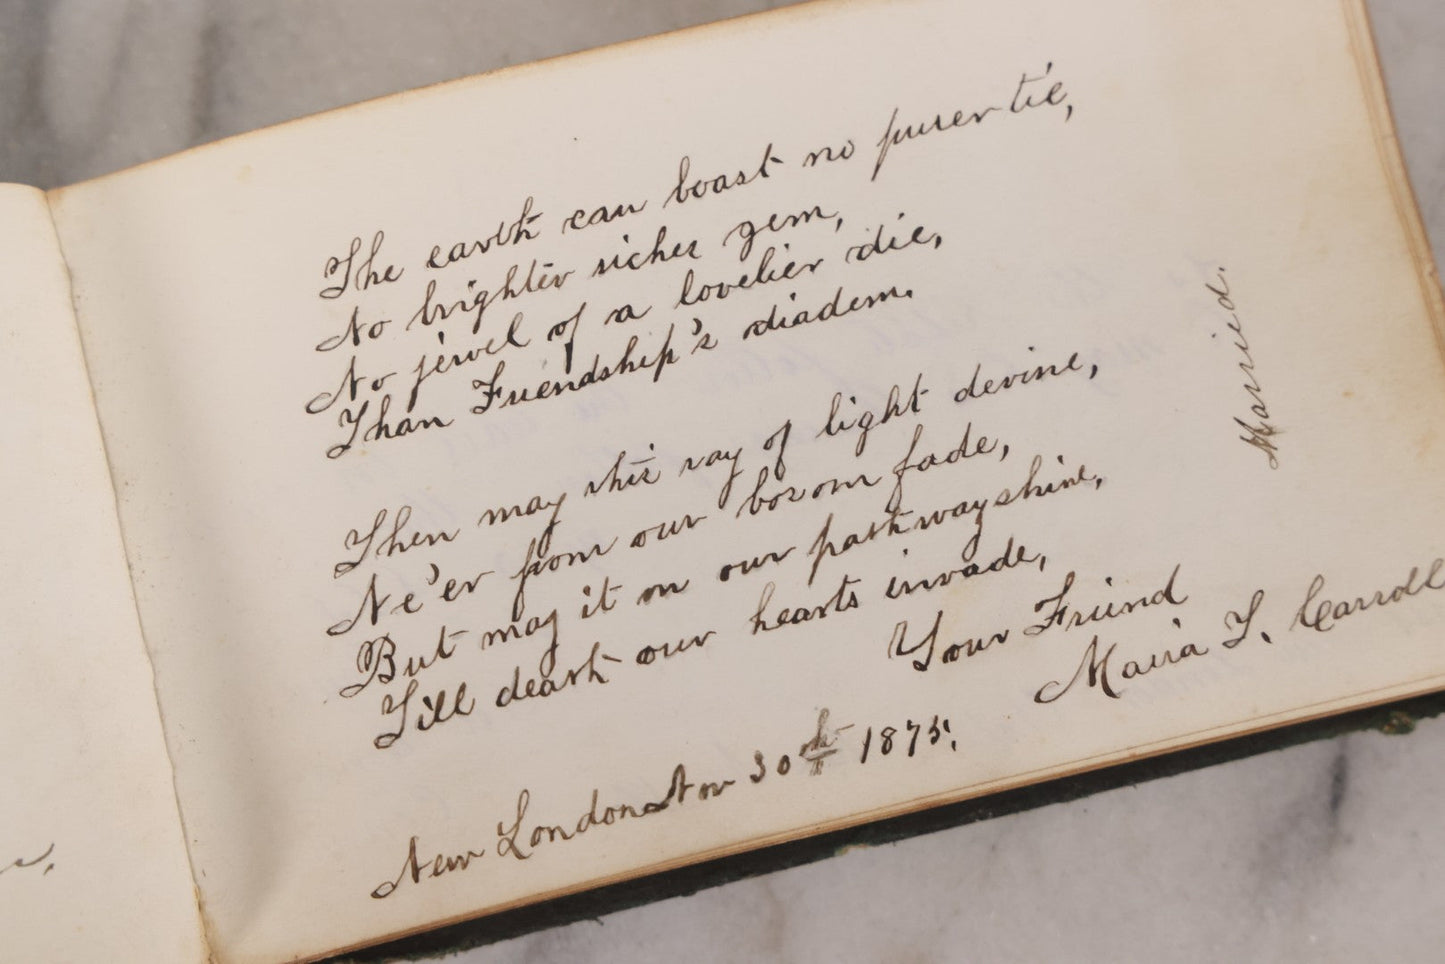 The earth can boast no purer tie,
No brighter richer gem,
No jewel of a lovelier die,
Than Friendship's diadem.
Then may this ray of light devine,
Ne'er from our bosom fade,
But may it on our pathway shine,
Till death our hearts invade,
Your Friend
Maria T. Carroll
New London Nov 30th 1875,
Married.